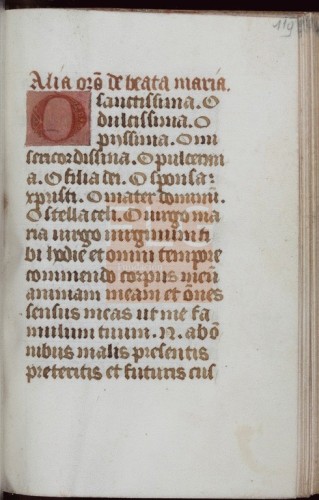 119
Alia orõ de beata maria.
O sanctissima. O
dulcissima. O
pijssima. O mi
sericordissima. O pulcerri
ma. O filia dei. O sponsa
xpristi. O mater domini.
O stella celi. O virgo ma
ria virgo virginum ti
bi hodie et omni tempore
commendo corpus meū
animam meam et ōnes
sensus meas ut me fa
mulum tuum. N. ab ō
nibus malis presentis
preteritis et futuris cus